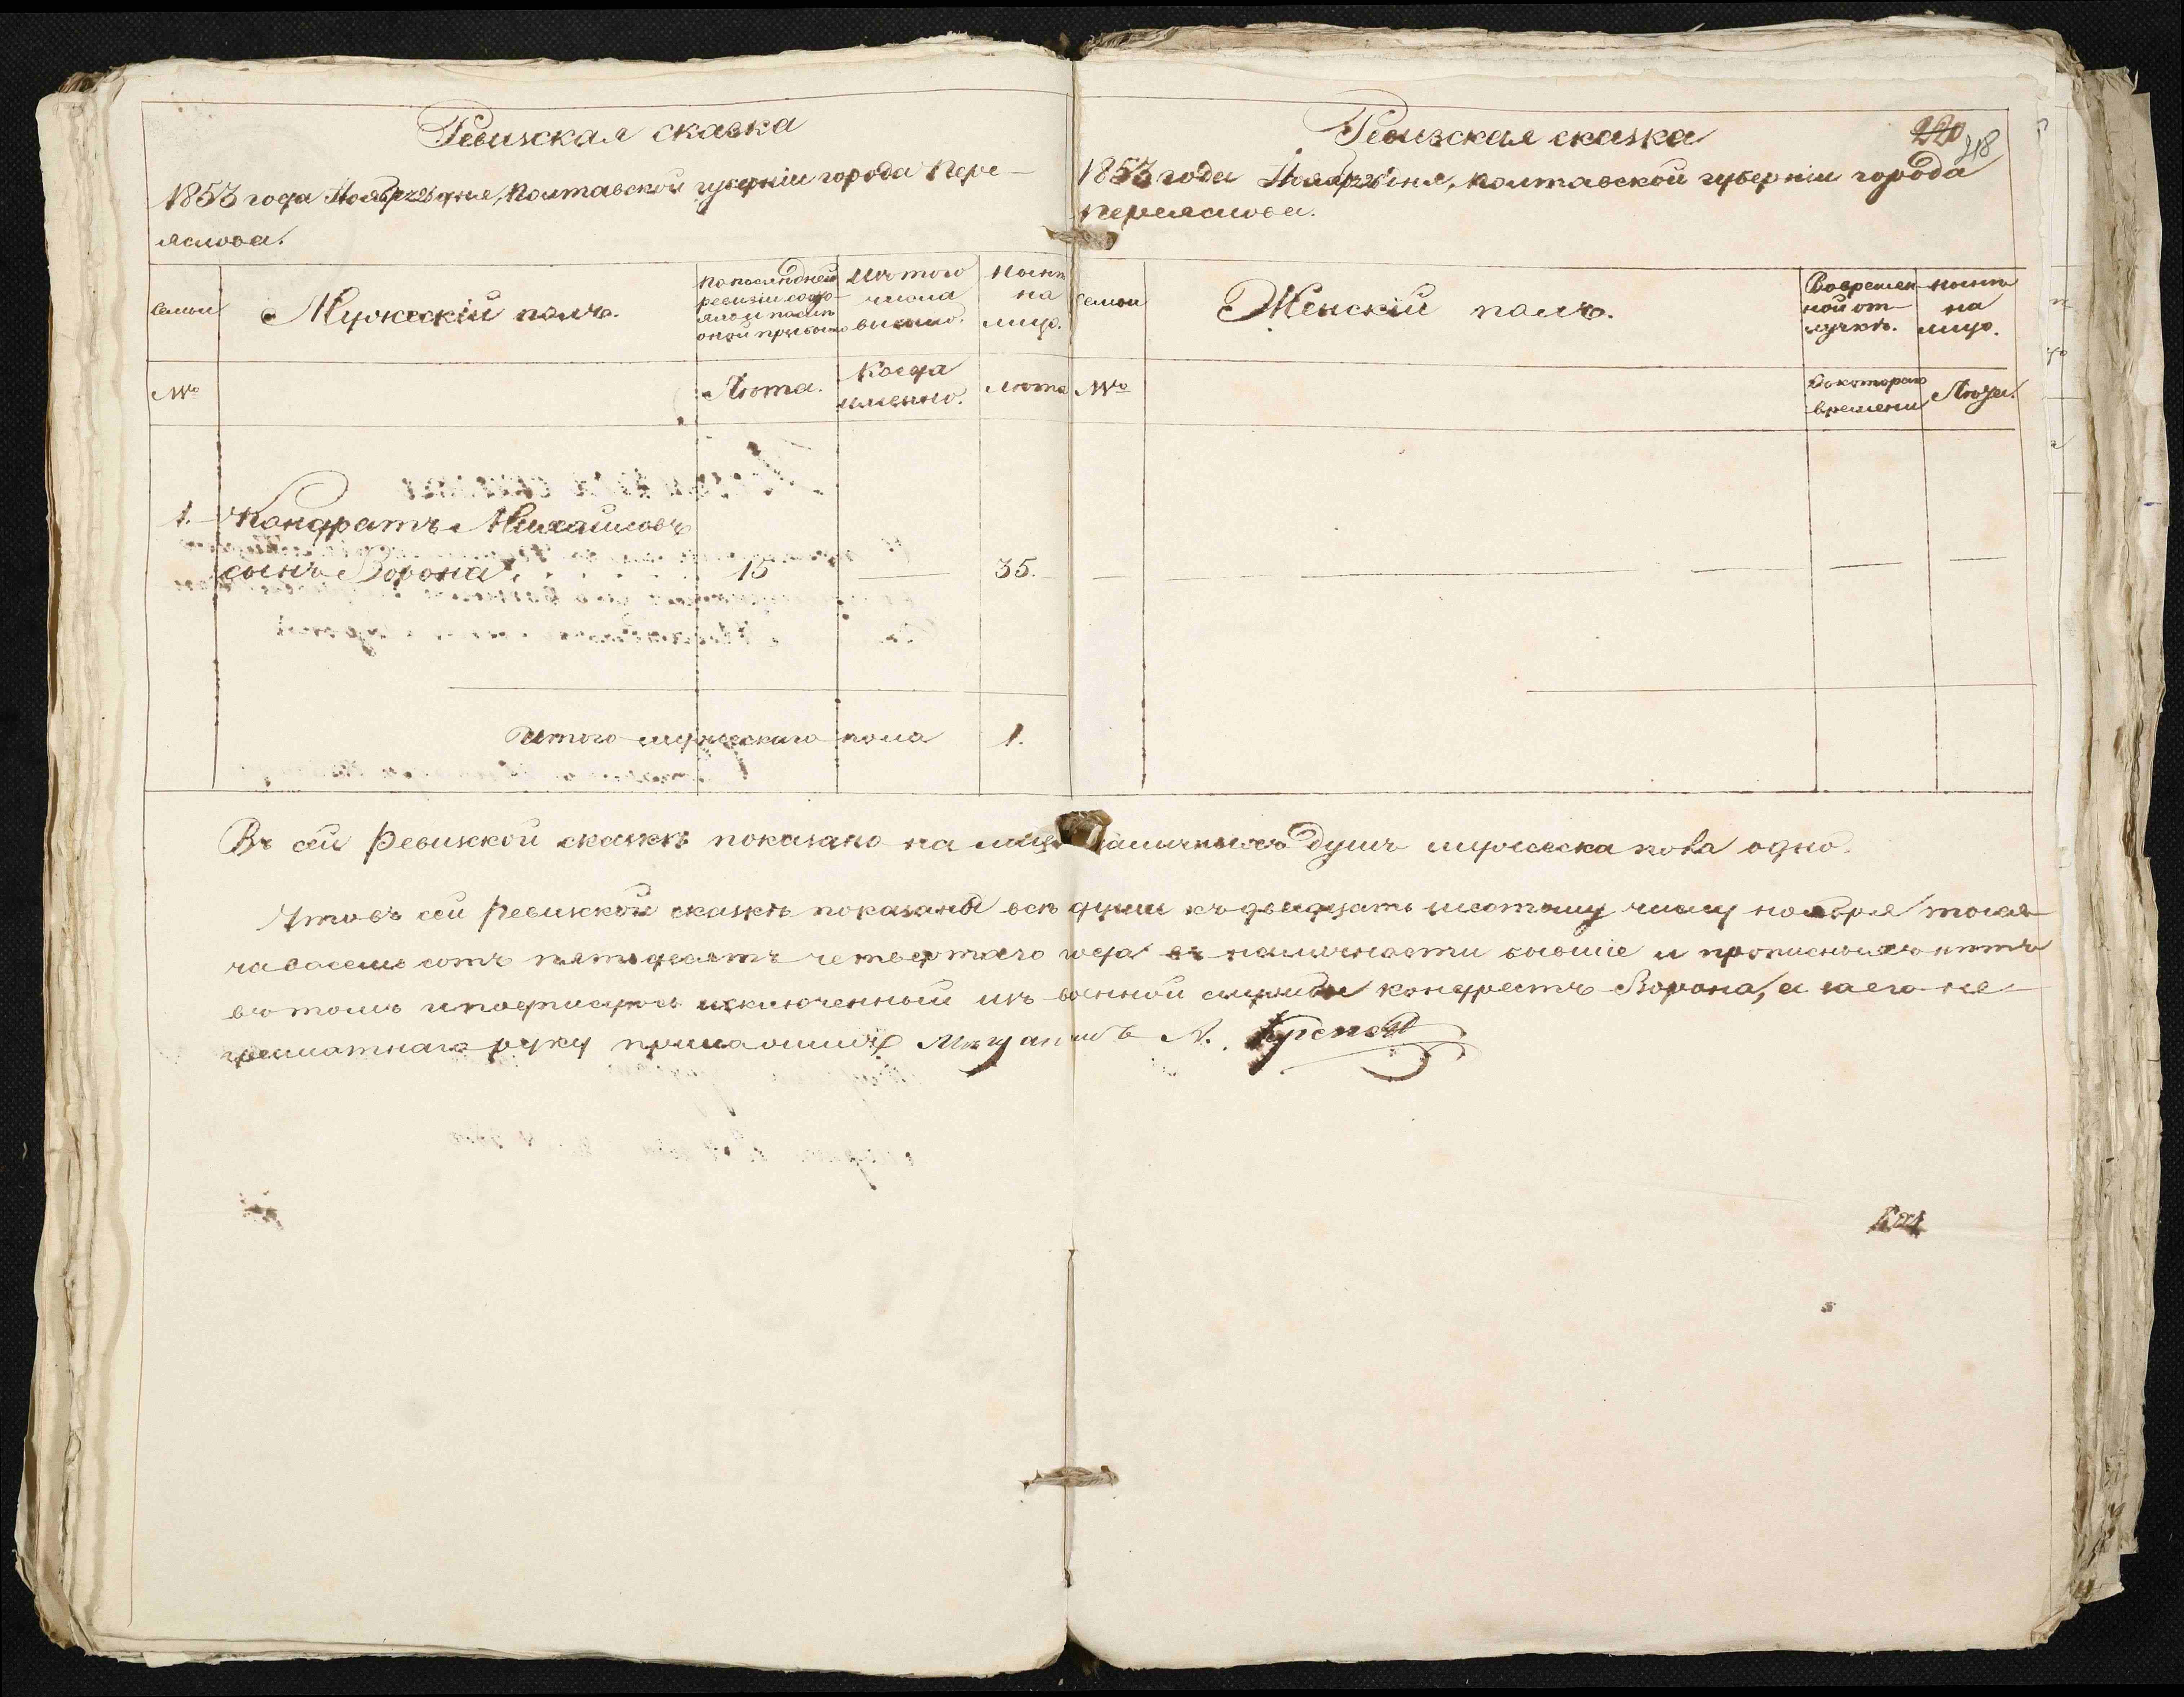 Ревизская сказка
1853 года Ноября 26 дня, Полтавской губерніи города Пере-
яслова.
Семьи
Мужескій полъ.
По последней
ревизіи состо-
яло и послѣ
оной прибыло
Изъ того
числа
выбыло.
Нынѣ
на
лицо.
№
Лѣта.
Когда
именно.
Лѣта
1. Кондратъ Михайловъ
сынъ Ворона 15 — 35.
Итого мужескаго пола 1.
Ревизская сказка
220
218
1853 года Ноября 26 дня, Полтавской губерніи города
Переяслова.
Семьи
Женскій полъ.
Во времен-
ной от-
лучкѣ.
Нынѣ
на
лицо.
№
Съ котораго
времени
Лѣта.
Въ сей Ревизкой сказкѣ показано на лицо наличныхъ душъ мужеска пола одно.
Что въ сей Ревизкой сказкѣ показаны всѣ души къ двадцать шестому числу ноября тысяча
ча восемь сотъ пятдесятъ четвертаго года въ наличности бывшіе и прописныхъ нѣтъ
въ томъ и подписуюсь изключенный изъ военной службы Кондратъ Ворона, а за его не-
грамотнаго руку приложилъ Мѣщанинъ